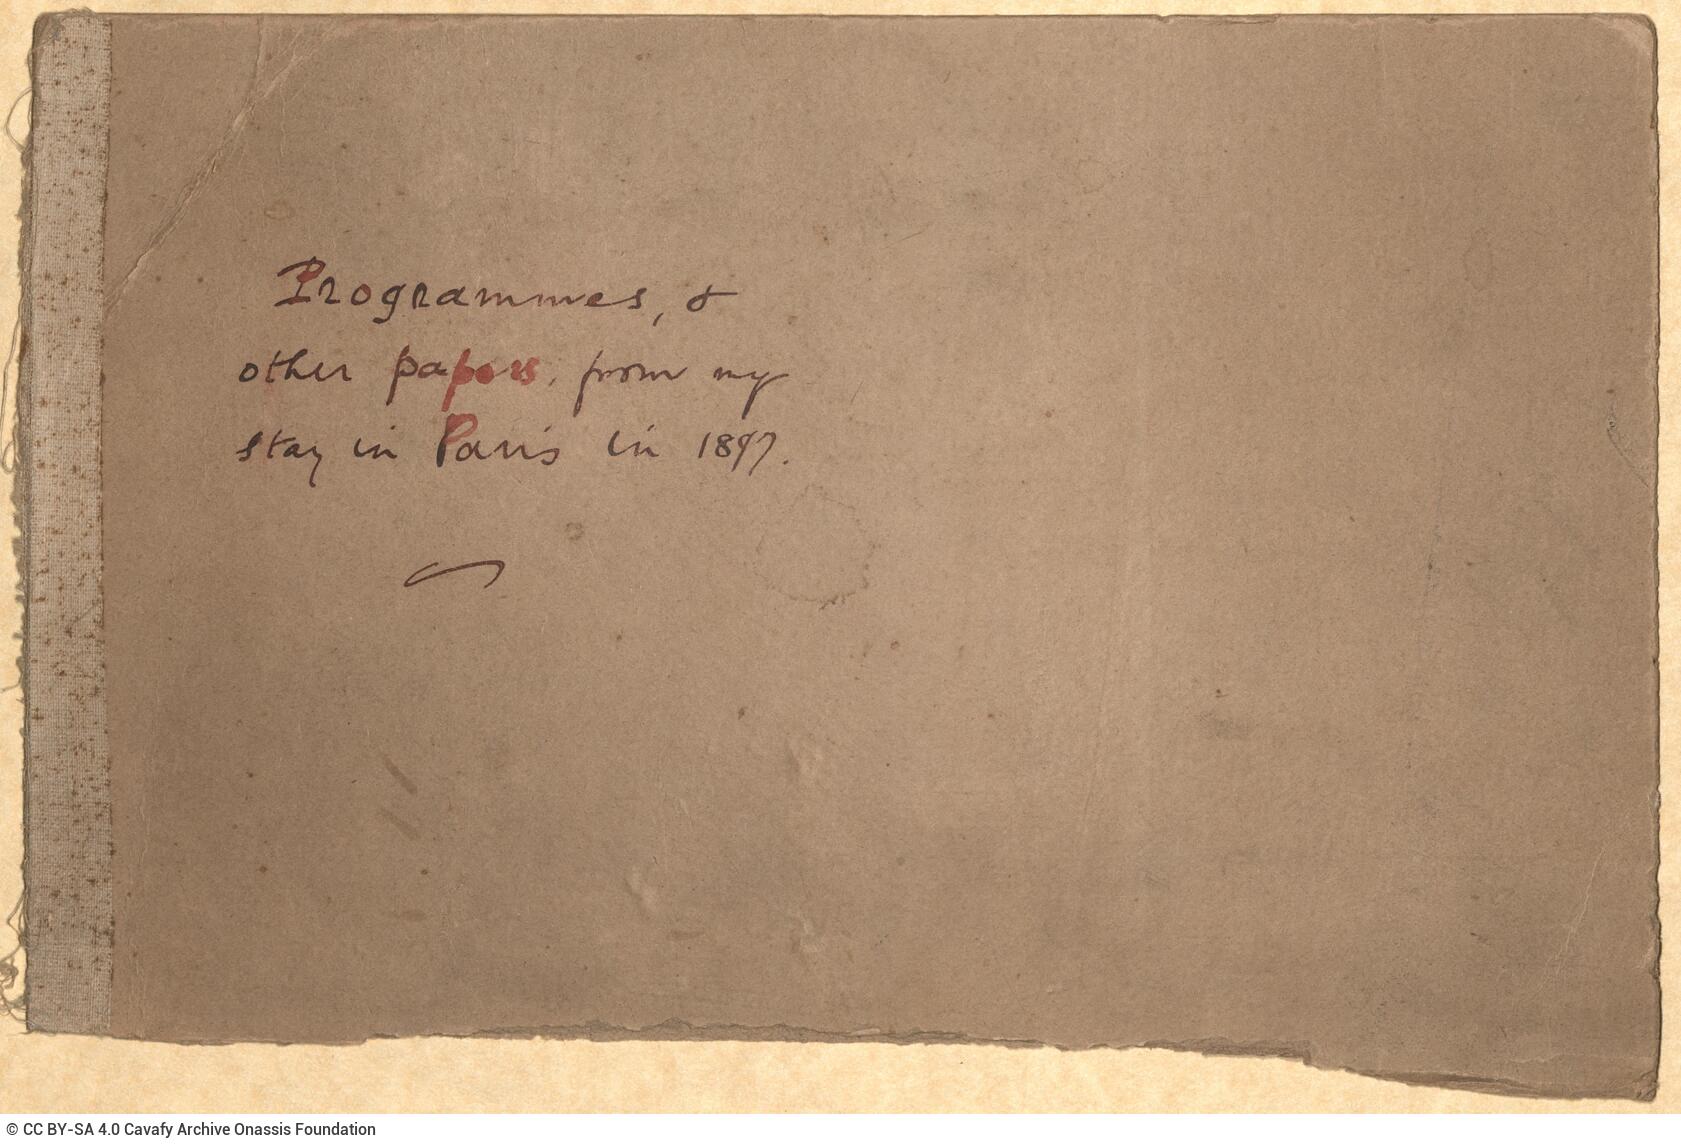 Programmes, &
other papers, from my
stay in Paris in 1897.
© CC BY-SA 4.0 Cavafy Archive Onassis Foundation